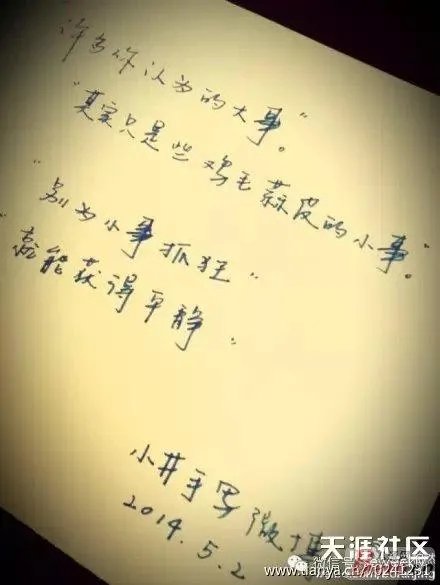 许多你认为的大事。"
"其实只是些鸡毛蒜皮的小事。"
"别为小事抓狂"
能获得平静."
小井手男 微博
2014.5.2
天涯社区